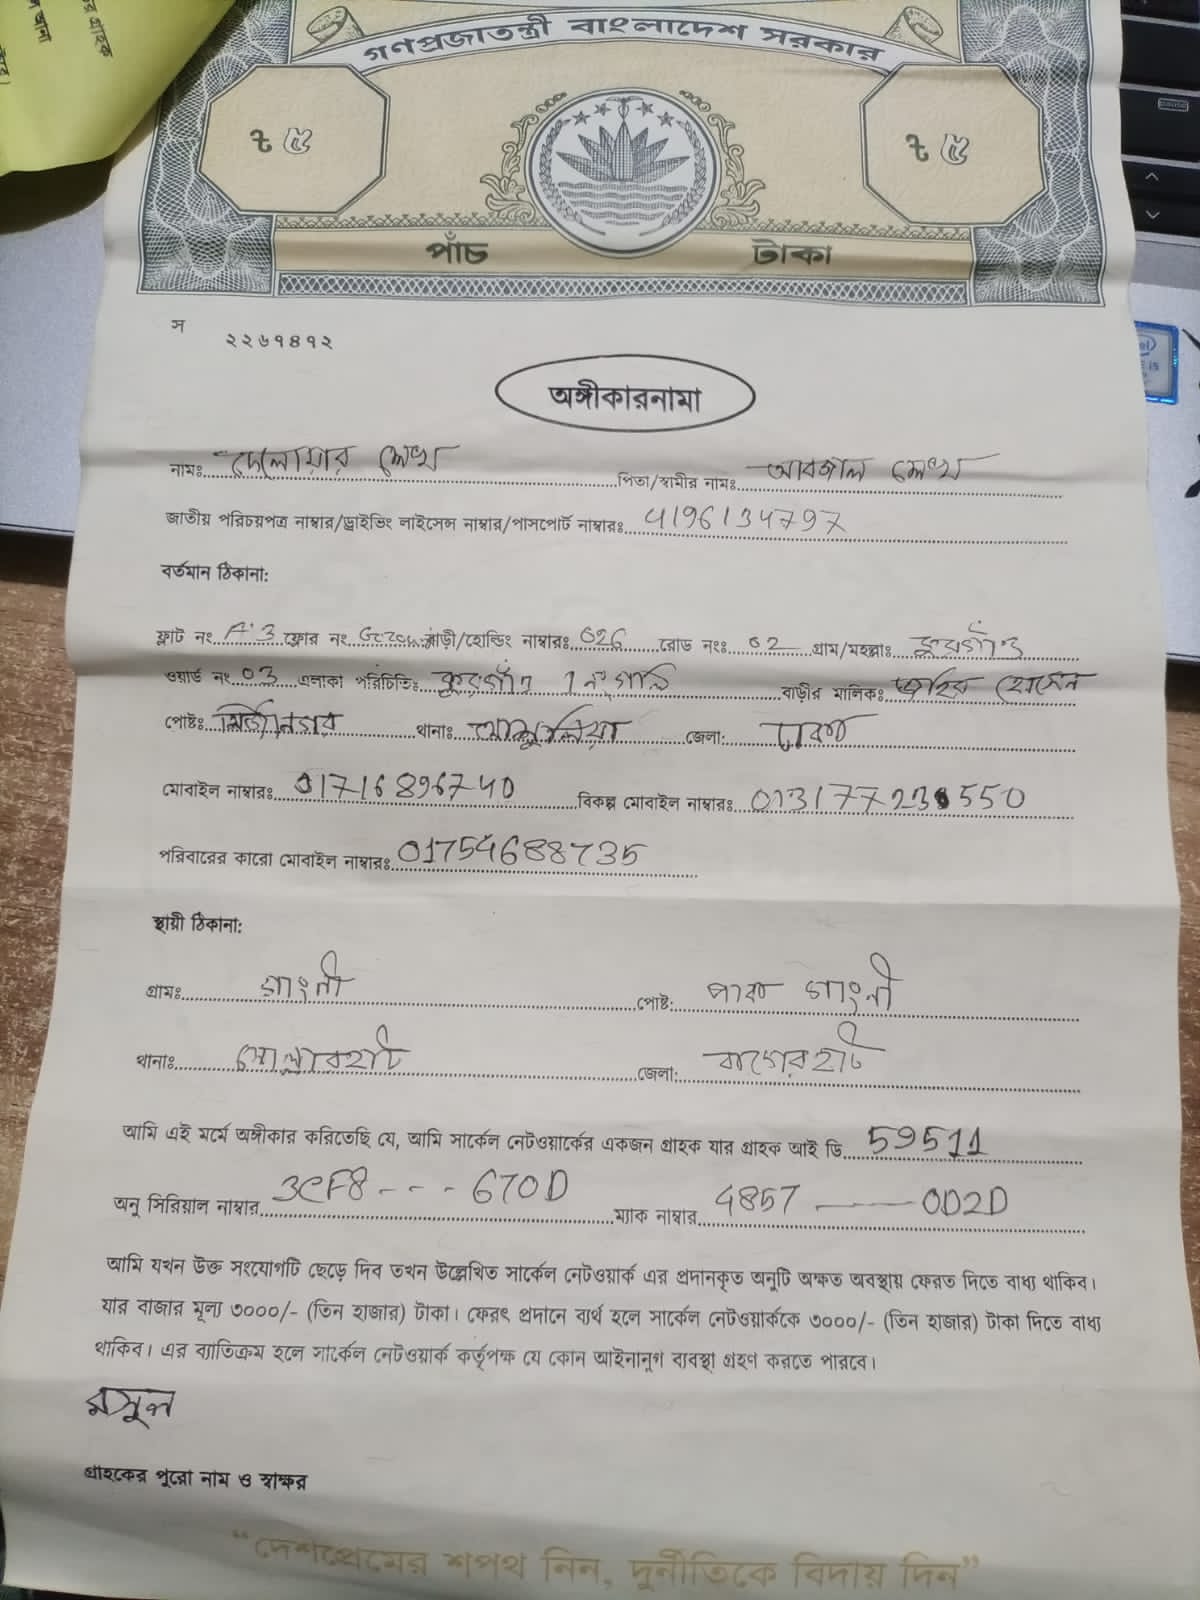 গণপ্রজাতন্ত্রী বাংলাদেশ সরকার
৳ ৫
৳ ৫
পাঁচ টাকা
স
২২৬৭৪৭২
অঙ্গীকারনামা
নামঃ দেলোয়ার শেখ পিতা/স্বামীর নামঃ আবজাল শেখ
জাতীয় পরিচয়পত্র নাম্বার/ড্রাইভিং লাইসেন্স নাম্বার/পাসপোর্ট নাম্বারঃ 4196134797
বর্তমান ঠিকানা:
ফ্লাট নং A'3 ফ্লোর নং বাড়ী/হোল্ডিং নাম্বারঃ 026 রোড নংঃ 02 গ্রাম/মহল্লাঃ
ওয়ার্ড নং 03 এলাকা পরিচিতিঃ 1 নং গলি বাড়ীর মালিকঃ জহির হোসেন
পোষ্টঃ মির্জানগর থানাঃ আশুলিয়া জেলা: ঢাকা
মোবাইল নাম্বারঃ 01716896740 বিকল্প মোবাইল নাম্বারঃ
পরিবারের কারো মোবাইল নাম্বারঃ 01754688735
স্থায়ী ঠিকানা:
গ্রামঃ গাংনী পোষ্ট: গাংনী
থানাঃ মোল্লারহাট জেলা: বাগেরহাট
আমি এই মর্মে অঙ্গীকার করিতেছি যে, আমি সার্কেল নেটওয়ার্কের একজন গ্রাহক যার গ্রাহক আই ডি 59511
অনু সিরিয়াল নাম্বার 3CF8 - - - 670D ম্যাক নাম্বার 4857 —— 0D2D
আমি যখন উক্ত সংযোগটি ছেড়ে দিব তখন উল্লেখিত সার্কেল নেটওয়ার্ক এর প্রদানকৃত অনুটি অক্ষত অবস্থায় ফেরত দিতে বাধ্য থাকিব।
যার বাজার মূল্য ৩০০০/- (তিন হাজার) টাকা। ফেরৎ প্রদানে ব্যর্থ হলে সার্কেল নেটওয়ার্ককে ৩০০০/- (তিন হাজার) টাকা দিতে বাধ্য
থাকিব। এর ব্যাতিক্রম হলে সার্কেল নেটওয়ার্ক কর্তৃপক্ষ যে কোন আইনানুগ ব্যবস্থা গ্রহণ করতে পারবে।
গ্রাহকের পুরো নাম ও স্বাক্ষর
“দেশপ্রেমের শপথ নিন, দুর্নীতিকে বিদায় দিন”